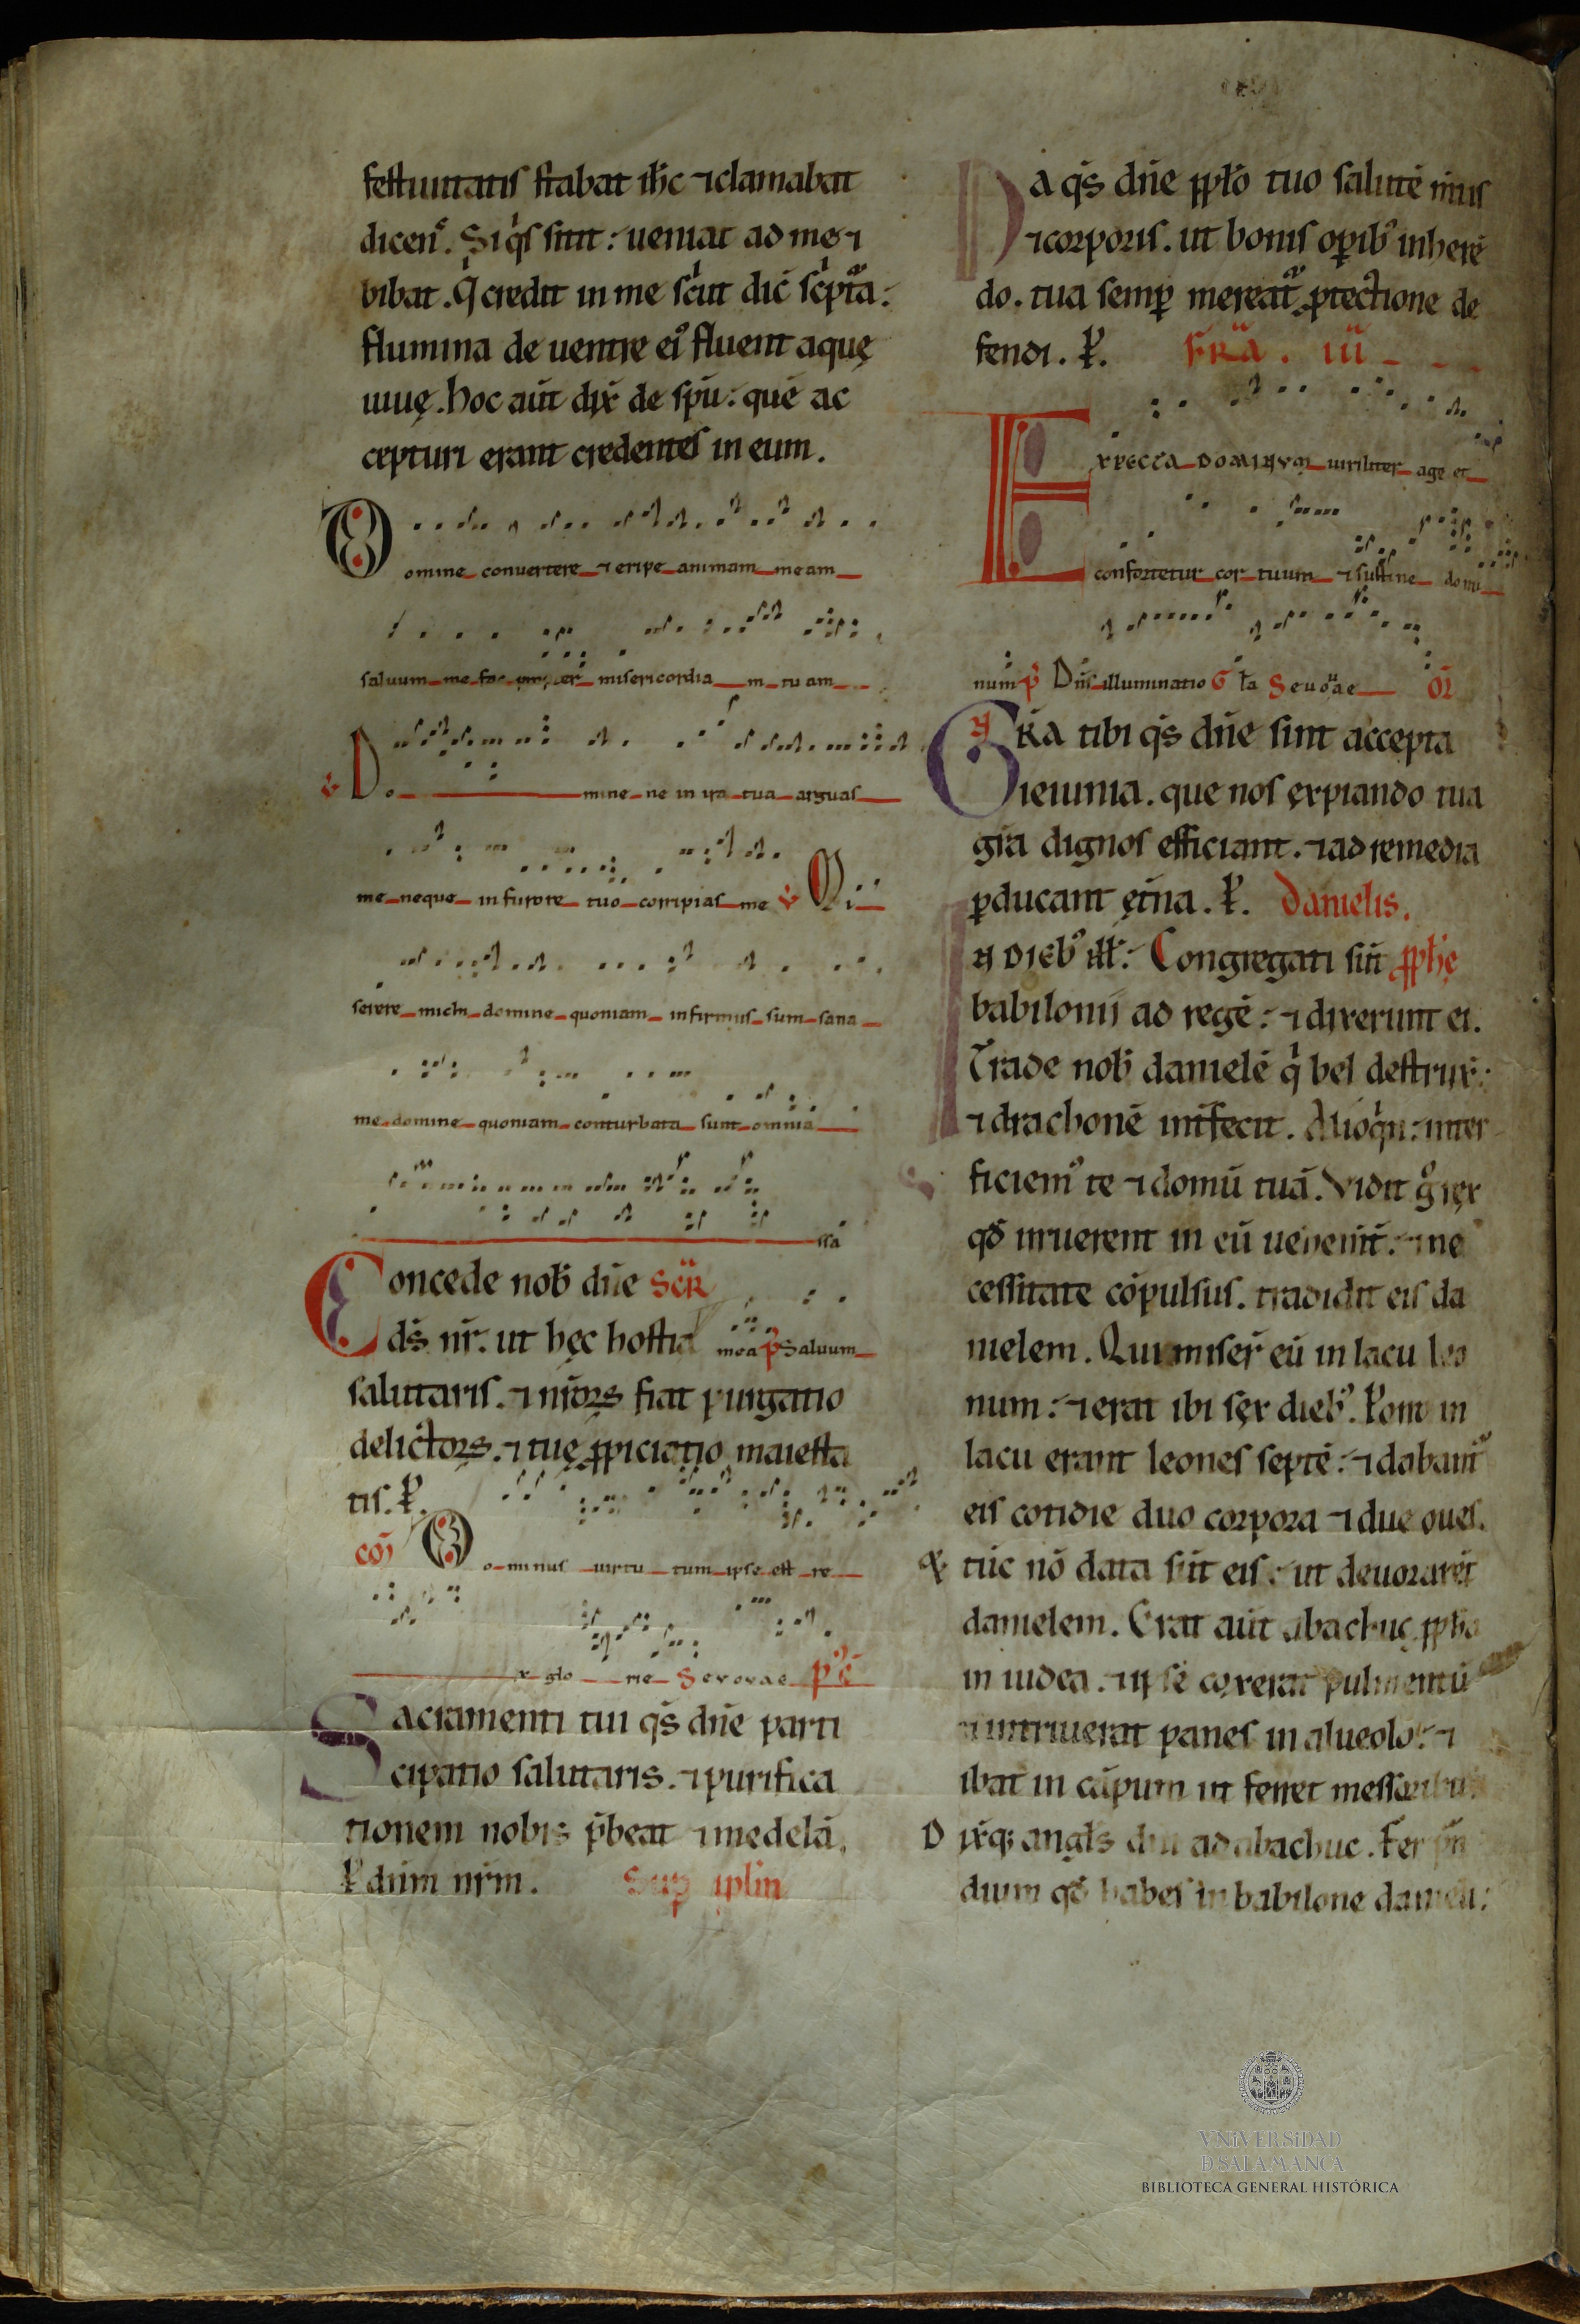 festiuitatis stabat ih̄c ⁊ clamabat
dicen᷒. Si q̇s sitit: ueniat ad me ⁊
bibat. Q̇ credit in me sic̄ut dic̄ sc̄ptᷓa:
flumina de uentre ei᷒ fluent aquę
uiuę. hoc aūt dix̄ de sp̄u: quē ac
cepturi erant credentes in eum.
Domine conuertere ⁊ eripe animam meam
saluum me fac propter misericordia m tuam
℣ Do mine ne in ira tua arguas
me neque in furore tuo corripias me ℣ Mi
serere michi domine quoniam infirmus sum sana
me domine quoniam conturbata sunt omnia
ssa
Concede nob̄ dn̄e Scr̄
ds̄ nr̄. ut hęc hostia mea p̄ Saluum
salutaris. ⁊ nr̄oꝝ fiat purgatio
delictoꝝ. ⁊ tuę ꝓpiciatio maiesta
tis. P̄.
cō Do minus uirtu tum ipse est re
x glo rie Seuouae p᷒ c̄
Sacramenti tui qs̄ dn̄e parti
cipatio salutaris. ⁊ purifica
tionem nobis p̄beat ⁊ medelā.
P̄ dn̄m nr̄m. Sup̱ ipl̄m
Da qs̄ dn̄e ppl̄o tuo salutē m̄tis
⁊ corporis. ut bonis oꝑib᷒ inherē
do. tua semꝑ mereat᷑ ꝓtectione de
fendi. P̄. FR̄A. iii
Expecta Dominum uiriliter age et
confortetur cor tuum ⁊ sustine domi
num p̄ Dn̄s illuminatio G ł̄a Seuouae OR̄
Gr̄a tibi qs̄ dn̄e sint accepta
ieiunia. que nos expiando tua
gr̄a dignos efficiant. ⁊ ad remedia
ꝑducant et̄na. P̄. Danielis.
IN DIEB᷒ ill̄: Congregati sūt ꝓph̄ę
babilonij ad regē: ⁊ dixerunt ei.
Trade nob̄ danielē q̇ bel destrux̄:
⁊ drachonē int̄fecit. Alioq̇n: inter
ficiem᷒ te ⁊ domū tuā. Vidit g̊ rex
qd̄ irruerent in eū uehem̄t: ⁊ ne
cessitate cōpulsus. tradidit eis da
nielem. Qui miser̄ eū in lacu leo
num: ⁊ erat ibi sex dieb᷒. Porro in
lacu erant leones septē: ⁊ dabant᷑
eis cotidie duo corpora ⁊ due oues.
Et tūc nō data sūt eis: ut deuorarēt
danielem. Erat aūt abachuc ꝓph̄a
in iudea. ⁊ ipse coxerat pulmentū
⁊ intriuerat panes in alueolo: ⁊
ibat in cāpum ut ferret messoribus.
Dix̄q; angl̄s dn̄i ad abachuc. Fer p̄n
dium qd̄ habes in babilone danieli:
VNiVERSiDAD
D SALAMANCA
BIBLIOTECA GENERAL HISTÓRICA